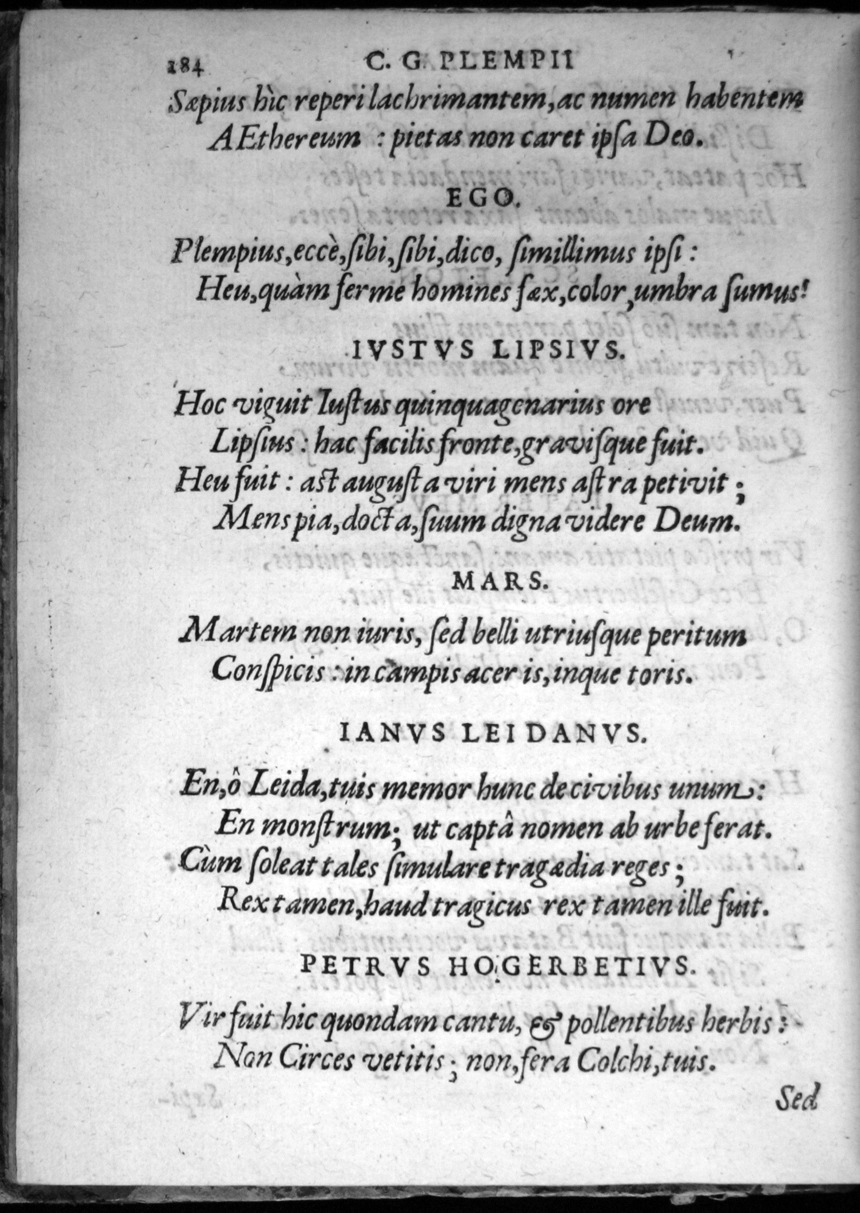 184 C. G. PLEMPII
Sæpius hìc reperi lachrimantem, ac numen habentem
AEthereum : pietas non caret ipſa Deo.
EGO.
Plempius, eccè, ſibi, ſibi, dico, ſimillimus ipſi :
Heu, quàm ferme homines fæx, color, umbra ſumus!
IVSTVS LIPSIVS.
Hoc viguit Iuſtus quinquagenarius ore
Lipſius : hac facilis fronte, graviſque fuit.
Heu fuit : aſt auguſta viri mens aſtra petivit ;
Mens pia, docta, ſuum digna videre Deum.
MARS.
Martem non iuris, ſed belli utriuſque peritum
Conſpicis : in campis acer is, inque toris.
IANVS LEIDANVS.
En, ô Leida, tuis memor hunc de civibus unum :
En monſtrum ; ut captâ nomen ab urbe ferat.
Cùm ſoleat tales ſimulare tragædia reges ;
Rex tamen, haud tragicus rex tamen ille fuit.
PETRVS HOGERBETIVS.
Vir fuit hic quondam cantu, & pollentibus herbis :
Non Circes vetitis ; non, fera Colchi, tuis.
Sed